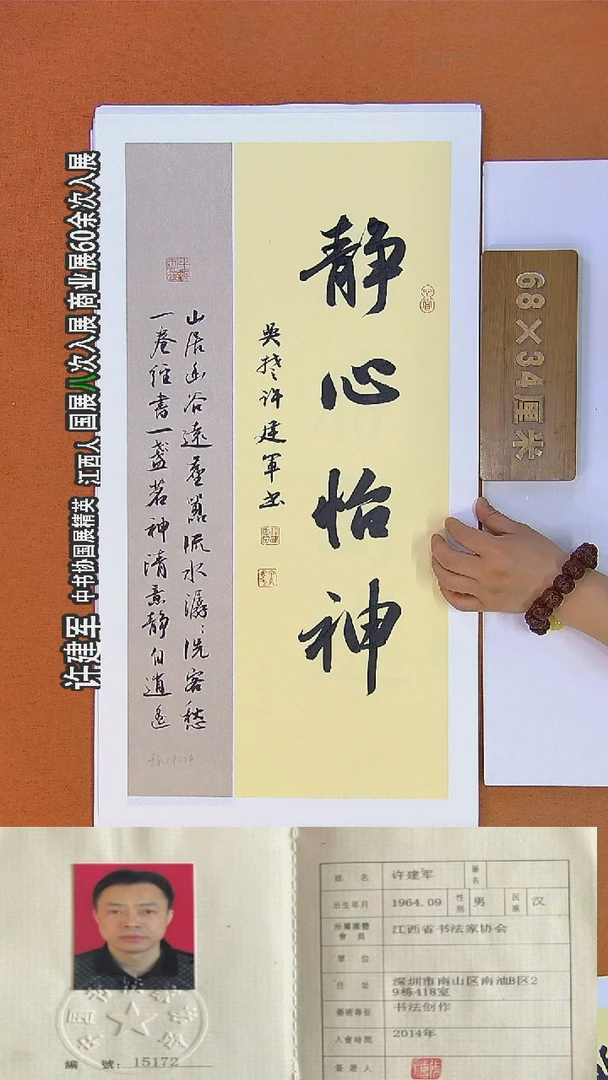 静心怡神
吴楚许建军书
山居幽谷远尘嚣流水潺潺洗客愁
一卷经书一盏茗神清意静自逍遥
68×34厘米
许建军 中书协国展精英 江西人 国展八次入展 商业展60余次入展
編 號: 15172
姓 名 许建军 筆名
出生年月 1964.09 性别 男 民族 汉
所屬團體會員 江西省书法家协会
單 位
住 址 深圳市南山区南油B区2
9栋418室
藝術專長 书法创作
入會時間 2014年
簽證人